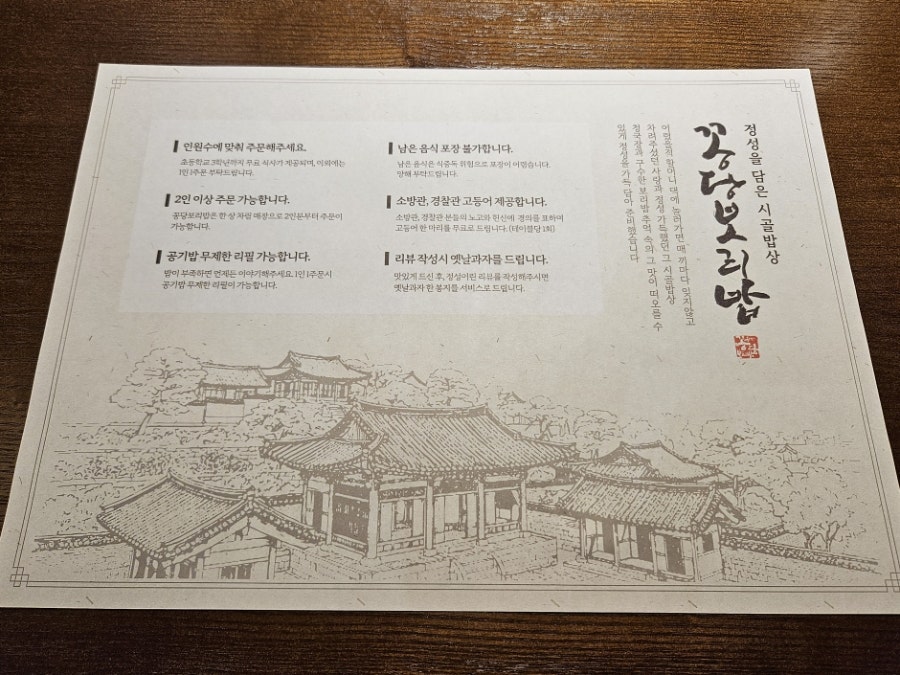 인원수에 맞춰 주문해주세요.
초등학교 3학년까지 무료 식사가 제공되며, 이외에는
1인 1주문 부탁드립니다.
2인 이상 주문 가능합니다.
꽁당보리밥은 한 상 차림 매장으로 2인분부터 주문이
가능합니다.
공기밥 무제한 리필 가능합니다.
밥이 부족하면 언제든 이야기해주세요. 1인 1주문시
공기밥 무제한 리필이 가능합니다.
남은 음식 포장 불가합니다.
남은 음식은 식중독 위험으로 포장이 어렵습니다.
양해 부탁드립니다.
소방관, 경찰관 고등어 제공합니다.
소방관, 경찰관 분들의 노고와 헌신에 경의를 표하며
고등어 한 마리를 무료로 드립니다. (테이블당 1회)
리뷰 작성시 옛날과자를 드립니다.
맛있게 드신 후, 정성어린 리뷰를 작성해주시면
옛날과자 한 봉지를 서비스로 드립니다.
정성을 담은 시골밥상
꽁당보리밥
어렸을적 할머니 댁에 놀러가면 매 끼마다 잊지않고
차려주셨던 사랑과 정성 가득했던 그 시골밥상
청국장과 구수한 보리밥 추억 속의 그 맛이 떠오를 수
있게 정성을 가득 담아 준비했습니다